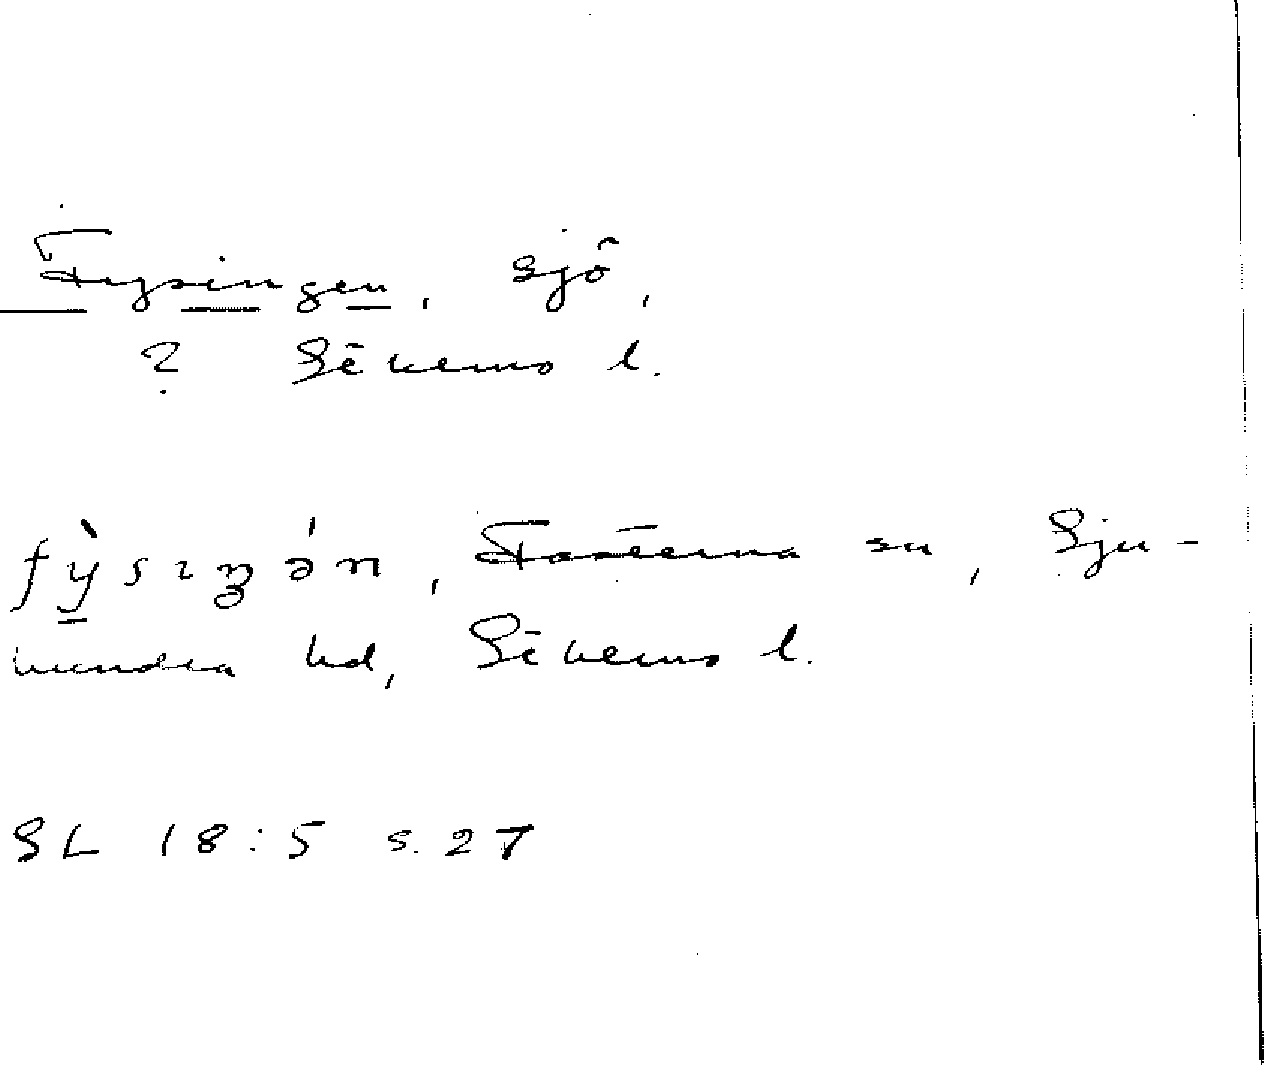 Fysingen, sjö,
? Sthlms l.
fỳsiŋə́n, Fasterna sn, Sju-
hundra hd, Sthlms l.
SL 18:5 s. 27